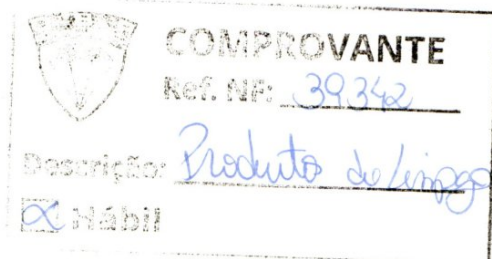 COMPROVANTE
Ref. NF: 39342
Descrição: Produto de limpeza
Hábil